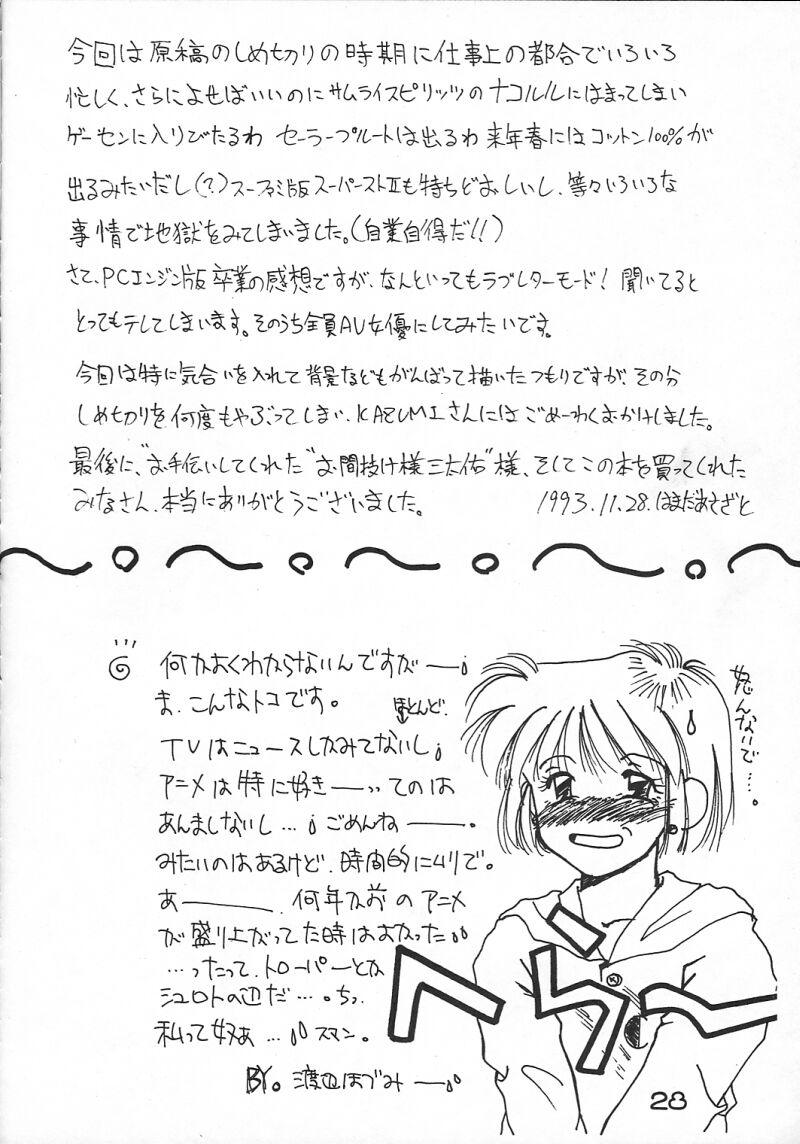 今回は原稿のしめ切りの時期に仕事上の都合でいろいろ
忙しく、さらによせばいいのにサムライスピリッツのナコルルにはまってしまい
ゲーセンに入りびたるわ セーラープルートは出るわ 来年春にはコットン100%が
出るみたいだし(?)スーファミ版スーパーストIIも待ちどおしいし、等々いろいろな
事情で地獄をみてしまいました。(自業自得だ!!)
さて、PCエンジン版卒業の感想ですが、なんといってもラブレターモード! 聞いてると
とってもテレてしまいます。そのうち全員AV女優にしてみたいです。
今回は特に気合いを入れて背景などもがんばって描いたつもりですが、その分
しめ切りを何度もやぶってしまい、KAZUMIさんにはごめーわくおかけしました。
最後に、“お手伝いしてくれた“お間抜け様三太佑”様、そしてこの本を買ってくれた
みなさん、本当にありがとうございました。 1993.11.28.はまだあさざと
何かよくわからないんですがー
ま、こんなトコです。
ほとんど
TVはニュースしかみてないし
アニメは特に好きーってのは
あんましないし… ごめんねー.
みたいのはあるけど、時間的にムリで。
あー、何年か前のアニメ
が盛り上がってた時はよかった
…ったって、トルーパーとか
シュラトの辺だ…。ちっ
私って奴ぁ… スマン。
BY。渡辺ほづみー
怒んないで…。
へらへ
28